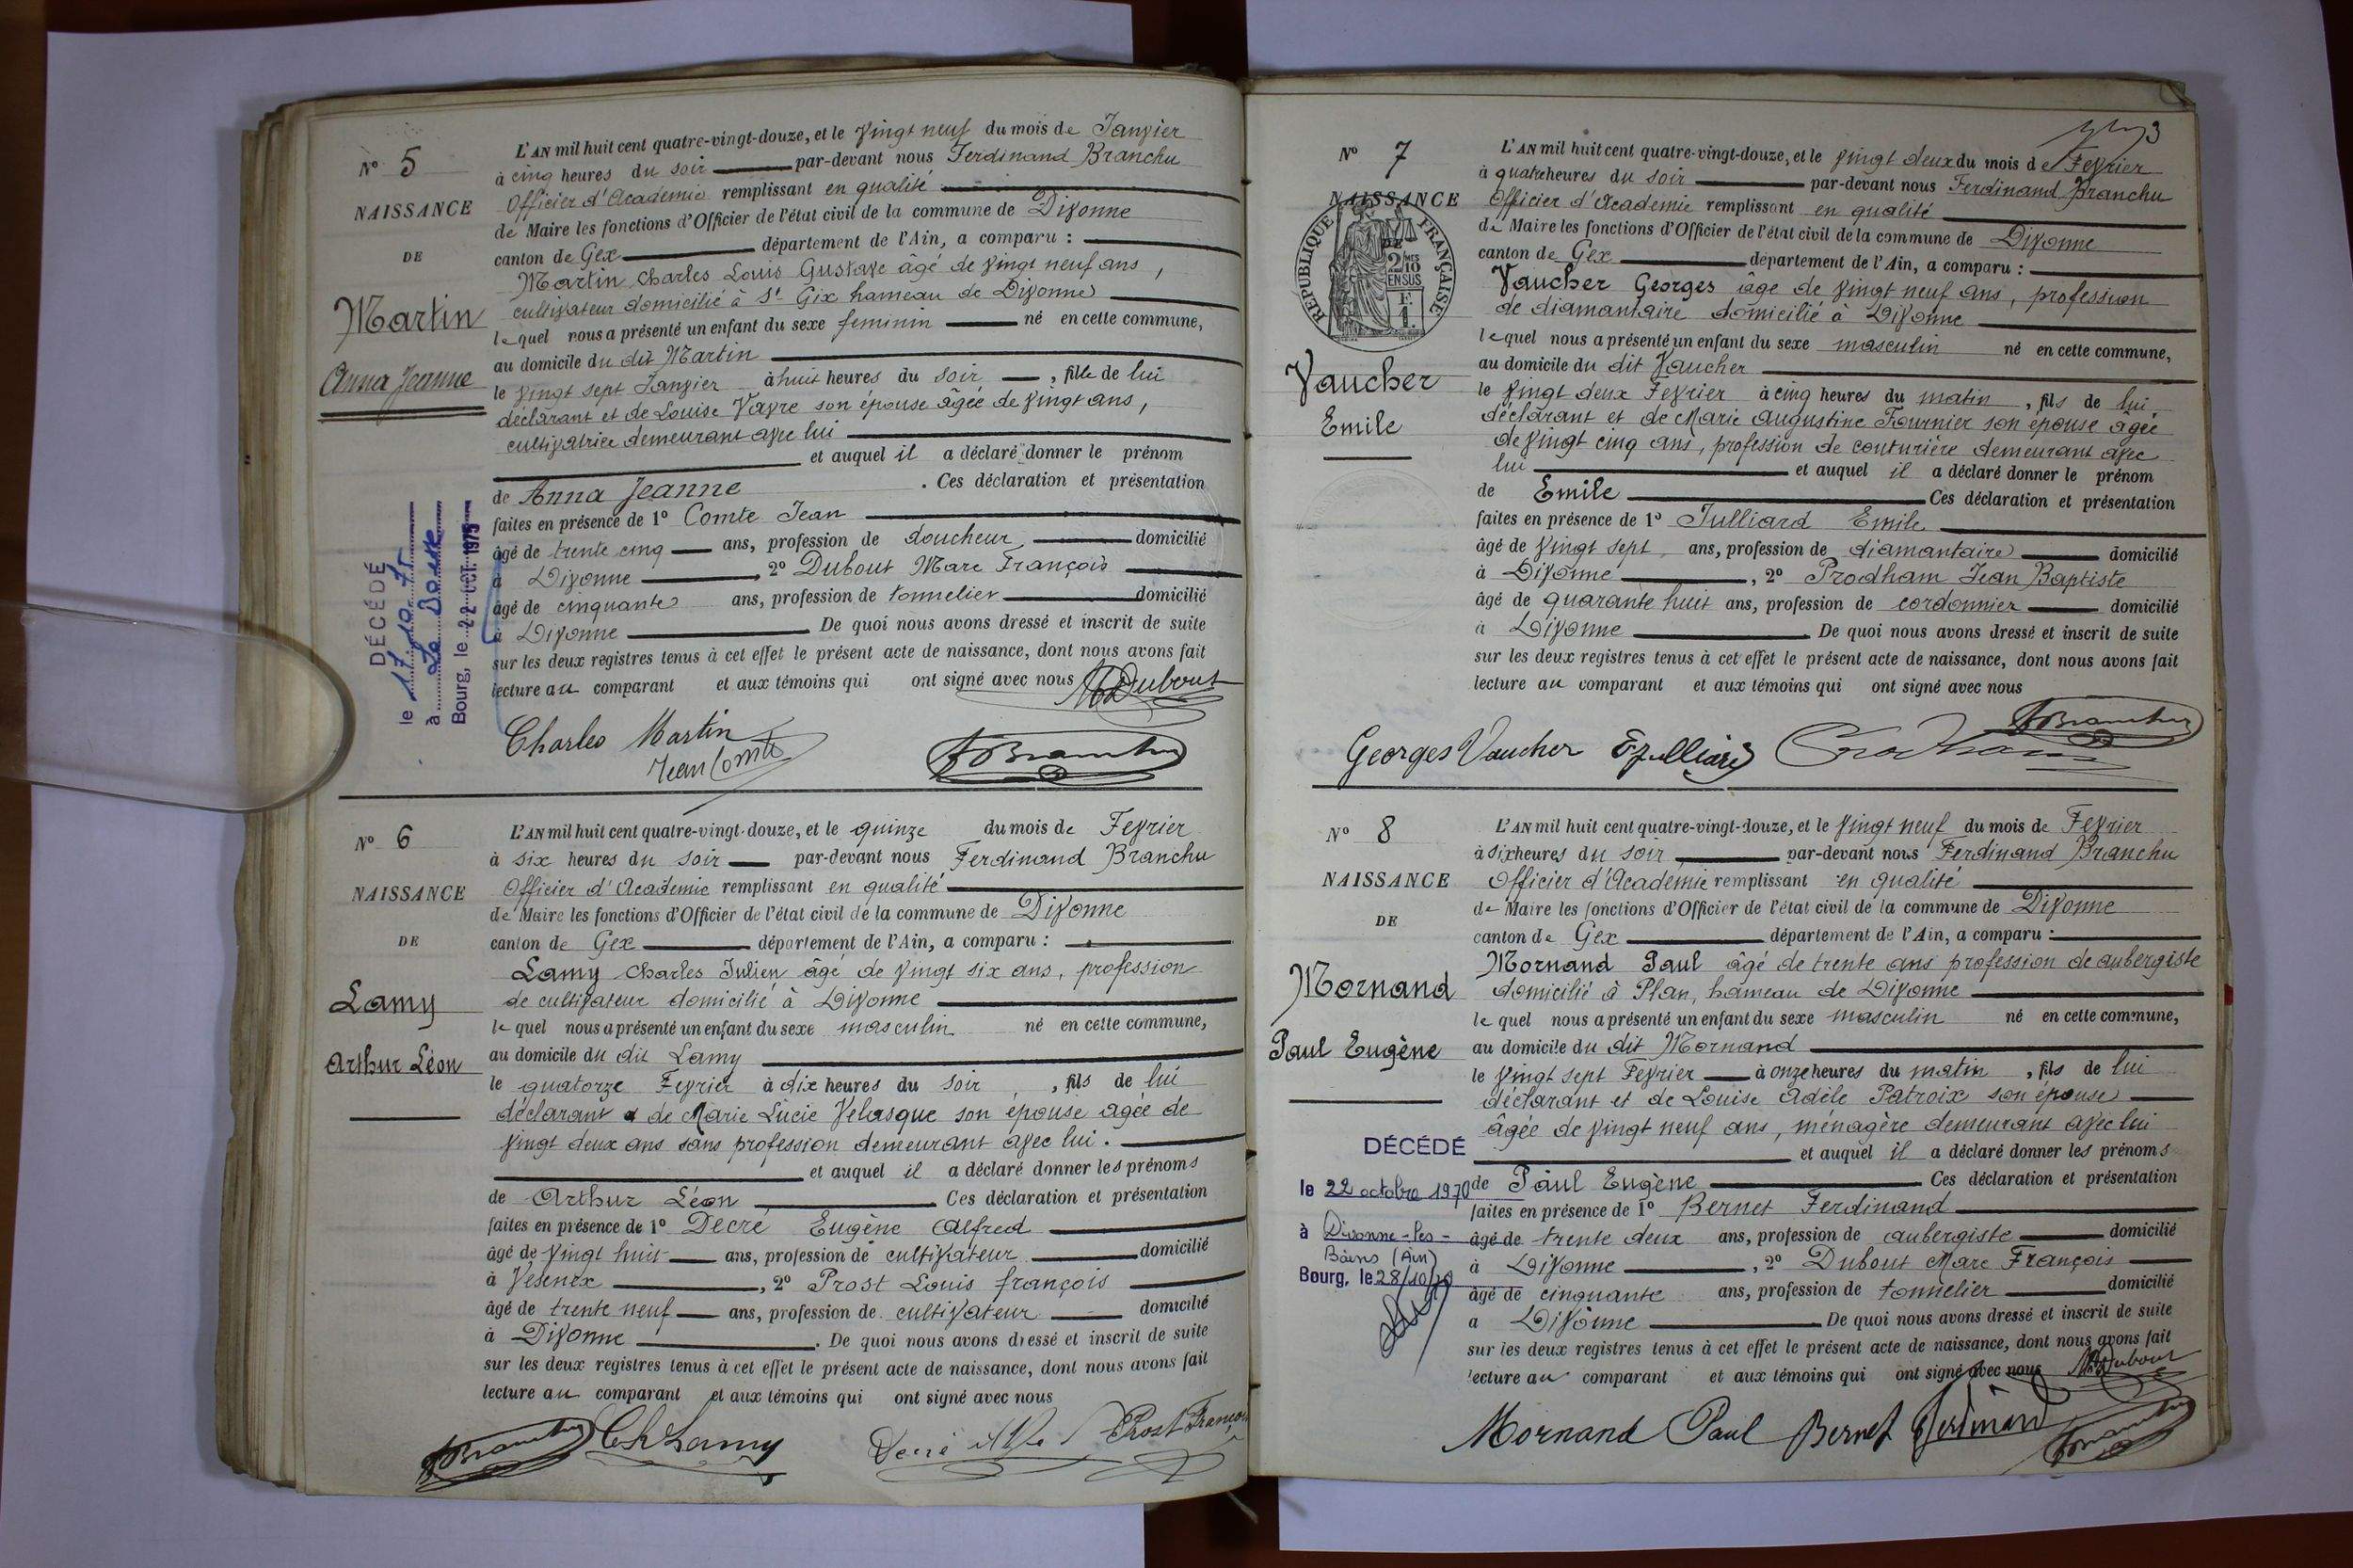 N° 5
NAISSANCE
DE
Martin
Anna Jeanne
L'AN mil huit cent quatre-vingt-douze, et le vingt neuf du mois de Janvier
à cinq heures du soir par-devant nous Ferdinand Branchu
Officier d'Académie remplissant en qualité
de Maire les fonctions d'Officier de l'état civil de la commune de Divonne
canton de Gex département de l'Ain, a comparu :
Martin Charles Louis Gustave âgé de vingt neuf ans,
cultivateur domicilié à St Gix hameau de Divonne
lequel nous a présenté un enfant du sexe feminin né en cette commune,
au domicile du dit Martin
le vingt sept Janvier à huit heures du soir, fille de lui
déclarant et de Louise Vavre son épouse âgée de vingt ans,
cultivatrice demeurant avec lui
et auquel il a déclaré donner le prénom
de Anna Jeanne. Ces déclaration et présentation
faites en présence de 1° Comte Jean
âgé de trente cinq ans, profession de doucheur domicilié
à Divonne, 2° Dubout Marc François
âgé de cinquante ans, profession de tonnelier domicilié
à Divonne De quoi nous avons dressé et inscrit de suite
sur les deux registres tenus à cet effet le présent acte de naissance, dont nous avons fait
lecture au comparant et aux témoins qui ont signé avec nous
MDubout
Charles Martin
Jean Comte
FBranchu
DÉCÉDÉ
le 17.10.75
à
Bourg, le 22 OCT. 1975
N° 6
NAISSANCE
DE
Lamy
Arthur Léon
L'AN mil huit cent quatre-vingt-douze, et le quinze du mois de Fevrier
à six heures du soir par-devant nous Ferdinand Branchu
Officier d'Académie remplissant en qualité
de Maire les fonctions d'Officier de l'état civil de la commune de Divonne
canton de Gex département de l'Ain, a comparu :
Lamy Charles Julien âgé de vingt six ans, profession
de cultivateur domicilié à Divonne
lequel nous a présenté un enfant du sexe masculin né en cette commune,
au domicile du dit Lamy
le quatorze Fevrier à dix heures du soir, fils de lui
déclarant et de Marie Lucie Velasque son épouse agée de
vingt deux ans sans profession demeurant avec lui.
et auquel il a déclaré donner les prénoms
de Arthur Léon Ces déclaration et présentation
faites en présence de 1° Decré Eugène Alfred
âgé de vingt huit ans, profession de cultivateur domicilié
à Vésenex, 2° Prost Louis françois
âgé de trente neuf ans, profession de cultivateur domicilié
à Divonne. De quoi nous avons dressé et inscrit de suite
sur les deux registres tenus à cet effet le présent acte de naissance, dont nous avons fait
lecture au comparant et aux témoins qui ont signé avec nous
FBranchu Ch Lamy Prost François
N° 7
NAISSANCE
DE
RÉPUBLIQUE FRANÇAISE
2/10 MES
EN SUS
F.
1.
Vaucher
Emile
3
L'AN mil huit cent quatre-vingt-douze, et le vingt deux du mois de Fevrier
à quatre heures du soir par-devant nous Ferdinand Branchu
Officier d'Académie remplissant en qualité
de Maire les fonctions d'Officier de l'état civil de la commune de Divonne
canton de Gex département de l'Ain, a comparu :
Vaucher Georges âge de vingt neuf ans, profession
de diamantaire domicilié à Divonne
lequel nous a présenté un enfant du sexe masculin né en cette commune,
au domicile du dit Vaucher
le vingt deux Fevrier à cinq heures du matin, fils de lui,
déclarant et de Marie Augustine Fournier son épouse agée
de vingt cinq ans, profession de couturière demeurant avec
lui et auquel il a déclaré donner le prénom
de Emile Ces déclaration et présentation
faites en présence de 1° Julliard Emile
âgé de vingt sept ans, profession de diamantaire domicilié
à Divonne, 2° Prodham Jean Baptiste
âgé de quarante huit ans, profession de cordonnier domicilié
à Divonne De quoi nous avons dressé et inscrit de suite
sur les deux registres tenus à cet effet le présent acte de naissance, dont nous avons fait
lecture au comparant et aux témoins qui ont signé avec nous
FBranchu
Georges Vaucher EJulliard Prodham
N° 8
NAISSANCE
DE
Mornand
Paul Eugène
L'AN mil huit cent quatre-vingt-douze, et le vingt neuf du mois de Fevrier
à six heures du soir par-devant nous Ferdinand Branchu
Officier d'Académie remplissant en qualité
de Maire les fonctions d'Officier de l'état civil de la commune de Divonne
canton de Gex département de l'Ain, a comparu :
Mornand Paul âgé de trente ans profession de aubergiste
domicilié à Plan, hameau de Divonne
lequel nous a présenté un enfant du sexe masculin né en cette commune,
au domicile du dit Mornand
le vingt sept Fevrier à onze heures du matin, fils de lui
déclarant et de Louise Adèle Patroix son épouse
âgée de vingt neuf ans, ménagère demeurant avec lui
et auquel il a déclaré donner les prénoms
de Paul Eugène Ces déclaration et présentation
faites en présence de 1° Bernet Ferdinand
âgé de trente deux ans, profession de aubergiste domicilié
à Divonne, 2° Dubout Marc François
âgé de cinquante ans, profession de tonnelier domicilié
a Divonne De quoi nous avons dressé et inscrit de suite
sur les deux registres tenus à cet effet le présent acte de naissance, dont nous avons fait
lecture au comparant et aux témoins qui ont signé avec nous
MDubout
Mornand Paul Bernet Ferdinand
FBranchu
DÉCÉDÉ
le 22 octobre 1970
à Divonne-les-
Bains (Ain)
Bourg, le 28/10/70